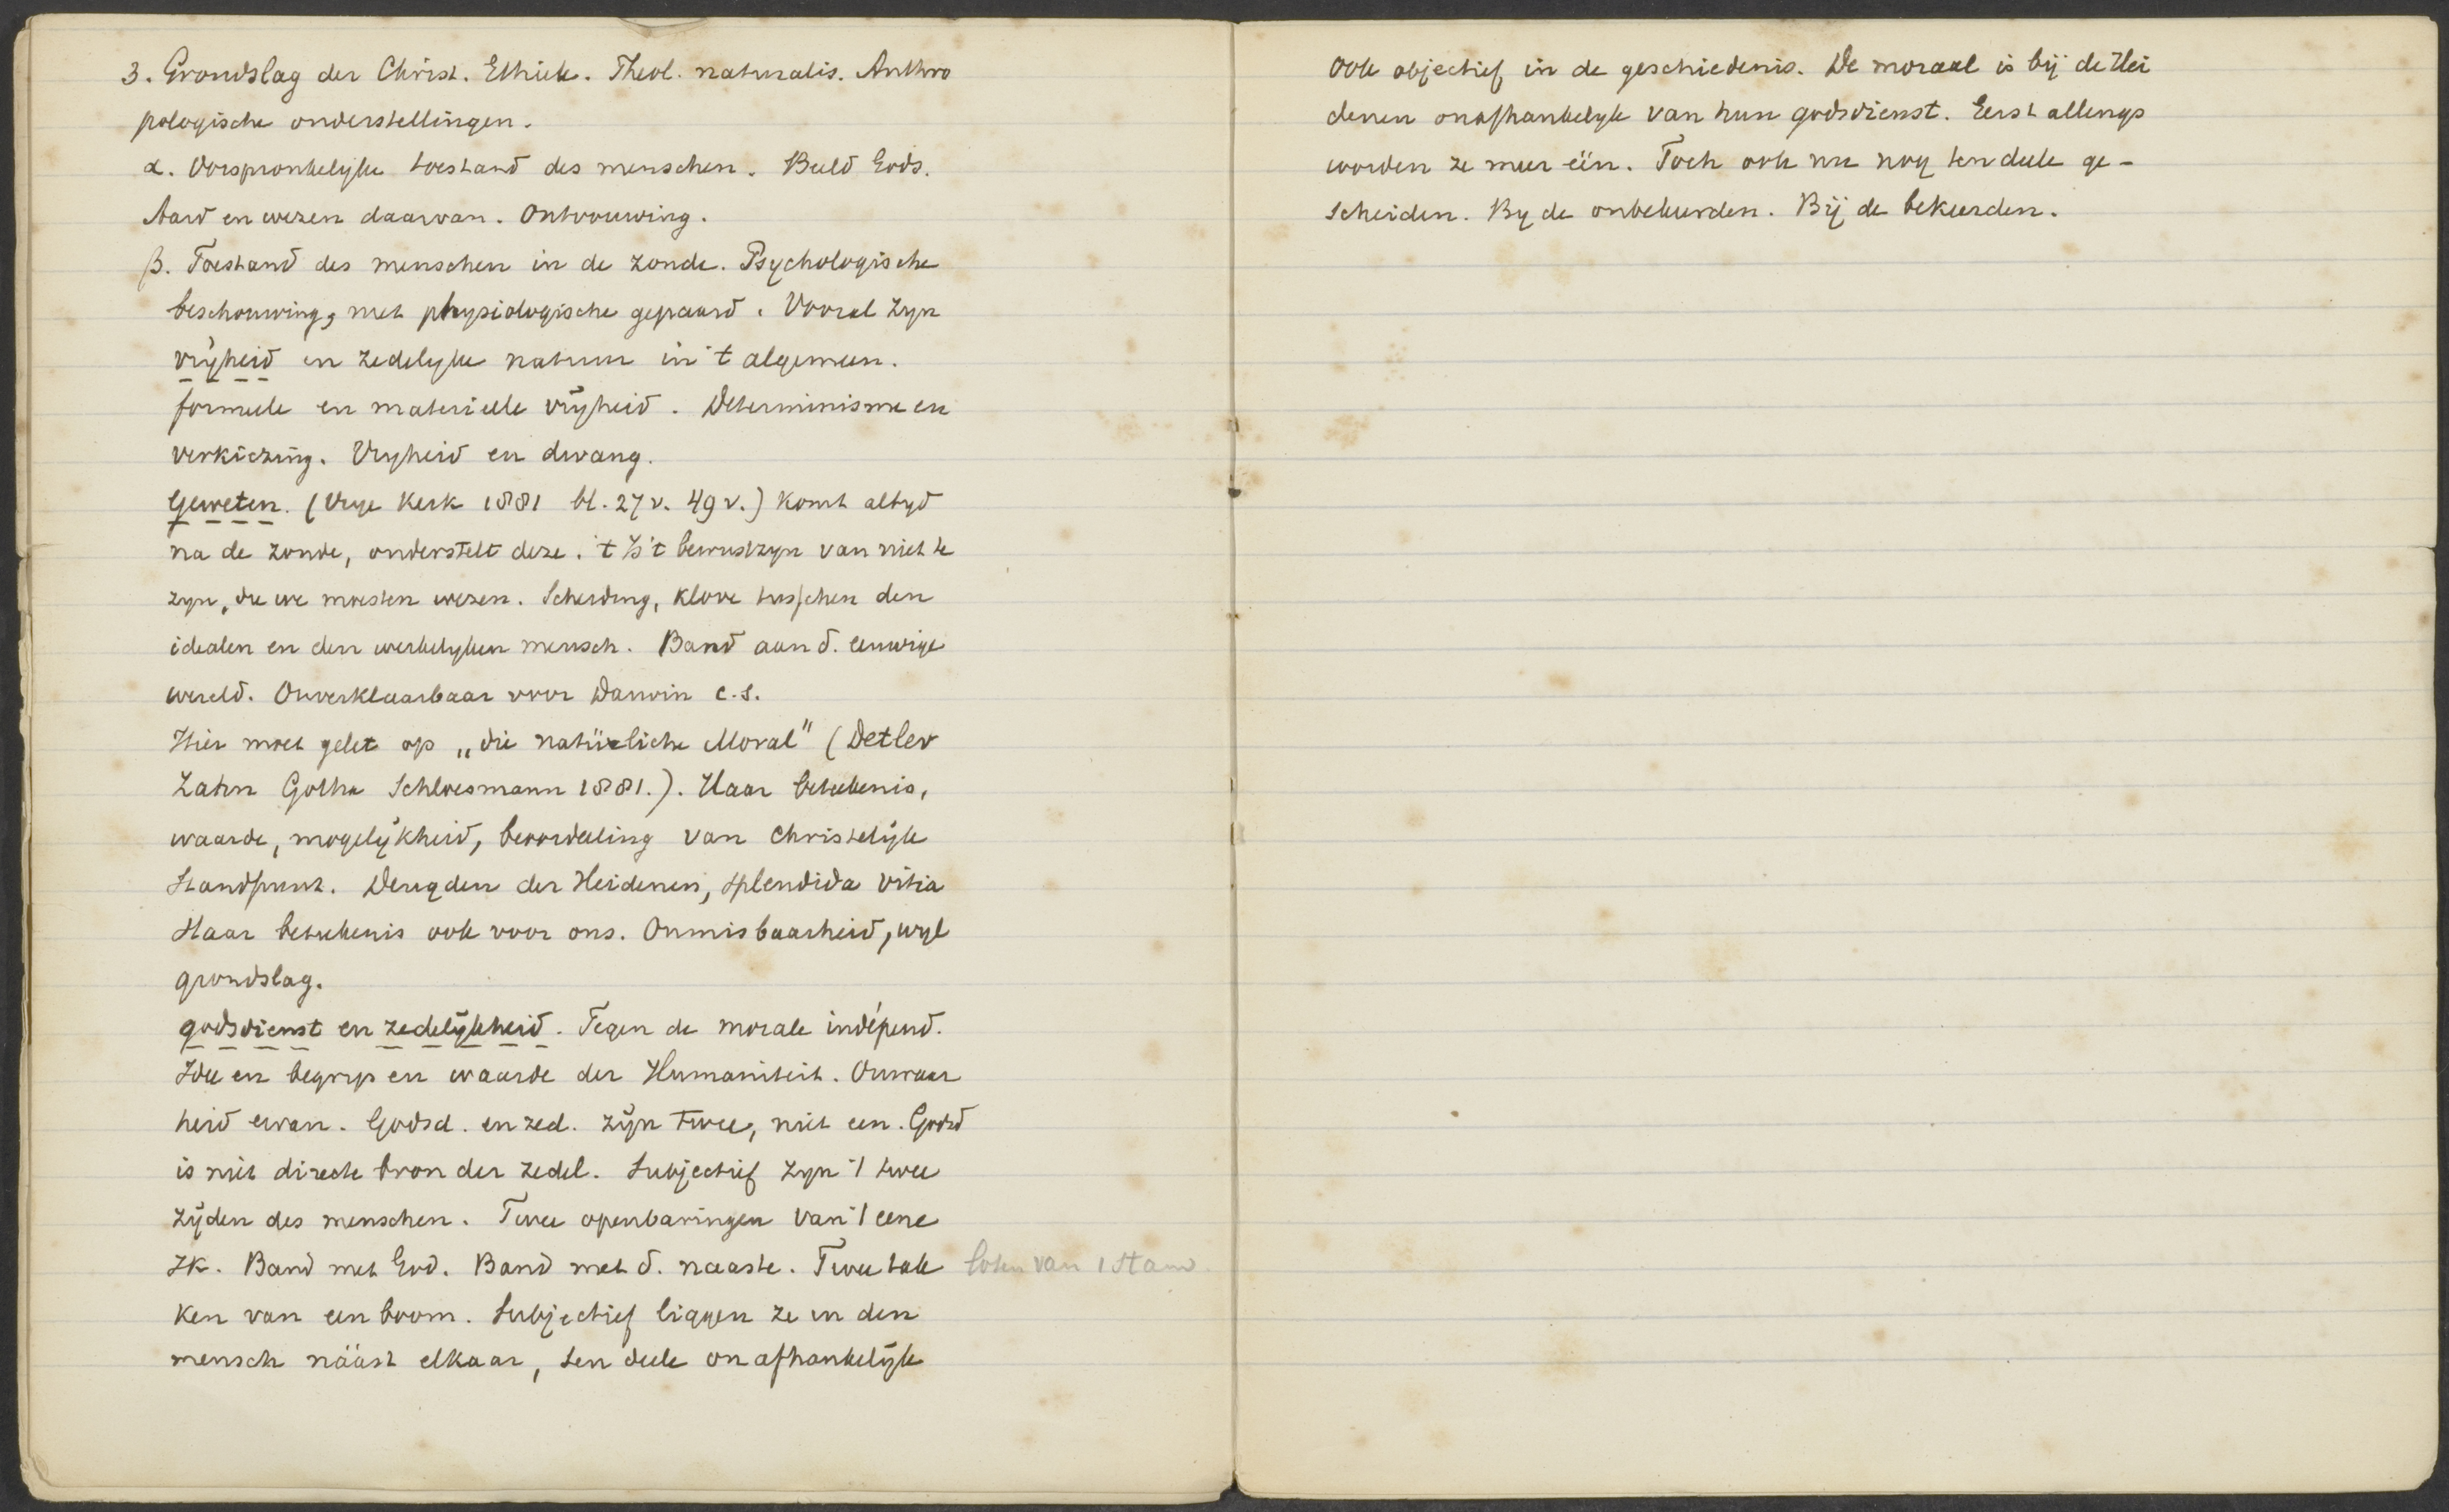 3. Grondslag der Christ. Ethiek. Theol. naturalis. Anthro
pologische onderstellingen.
α. Oorspronkelyke toestand des menschen. Beeld Gods.
Aard en wezen daarvan. Ontvouwing.
β. Toestand des menschen in de zonde. Psychologische
beschouwing, met physiologische gepaard. Vooral zyn
vrijheid en zedelyke natuur in 't algemeen.
formeele en materieele vrijheid. Determinisme en
verkiezing. Vryheid en dwang.
Geweten. (Vrije Kerk 1881 bl. 27 v. 49 v.) komt altyd
na de zonde, onderstelt deze. 't Is 't bewustzyn van niet te
zyn, die we moesten wezen. Scheiding, klove tusschen den
idealen en den werkelyken mensch. Band aan d. eeuwige
wereld. Onverklaarbaar voor Darwin c.s.
Hier moet gelet op „die natürliche Moral" (Detlev
Zahn Gotha Schloesmann 1881.). Haar beteekenis,
waarde, mogelijkheid, beoordeeling van Christelijk
standpunt. Deugden der Heidenen, splendida vitia
Haar beteekenis ook voor ons. Onmisbaarheid, wyl
grondslag.
godsdienst en zedelijkheid. Tegen de morale indépend.
Idee en begryp en waarde der Humaniteit. Onwaar
heid ervan. Godsd. en zed. zijn twee, niet een. Godsd
is niet directe bron der zedel. Subjectief zyn 't twee
zijden des menschen. Twee openbaringen van 't eene
Ik. Band met God. Band met d. naaste. Twee tak loten van 1 stam.
ken van een boom. Subjectief liggen ze in den
mensch náást elkaar, ten deele onafhankelijk
Ook objectief in de geschiedenis. De moraal is bij de Hei
denen onafhankelyk van hun godsdienst. Eerst allengs
worden ze meer één. Toch ook nu nog ten deele ge-
scheiden. By de onbekeerden. Bij de bekeerden.